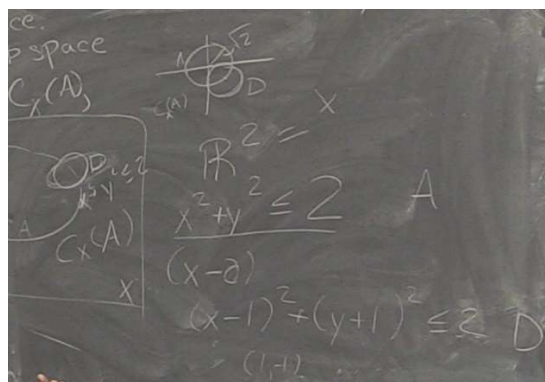 ce.
space
C_x(A),
√2
D
C_x(A)
ℝ² = X
D
≤ 2
y
A
C_x(A)
X
x² + y² ≤ 2 A
(x-a)
(x-1)² + (y+1)² ≤ 2 D
(1,-1)